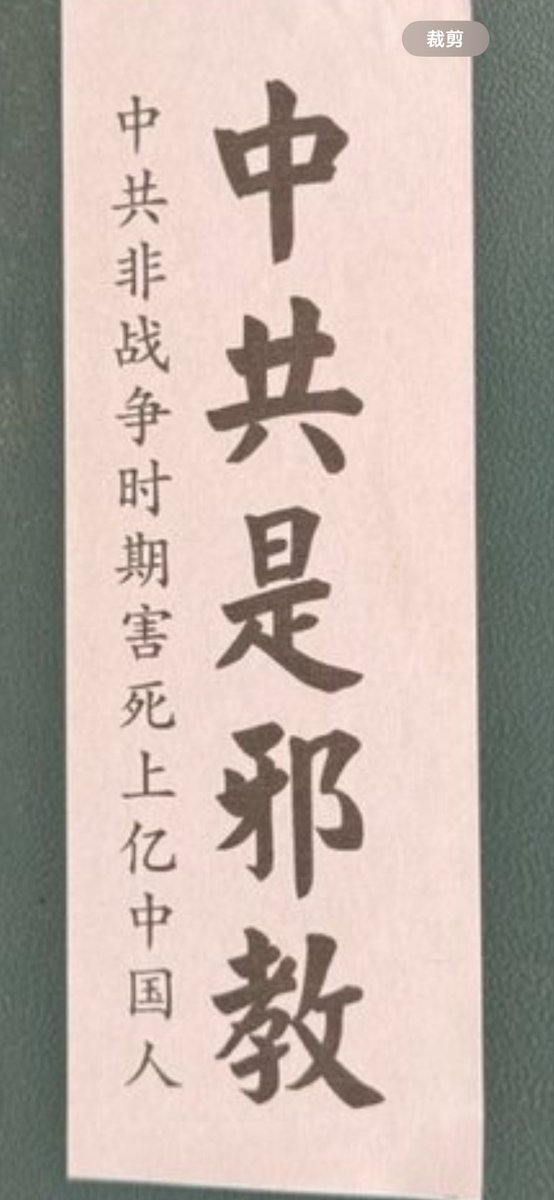 裁剪
中共是邪教
中共非战争时期害死上亿中国人